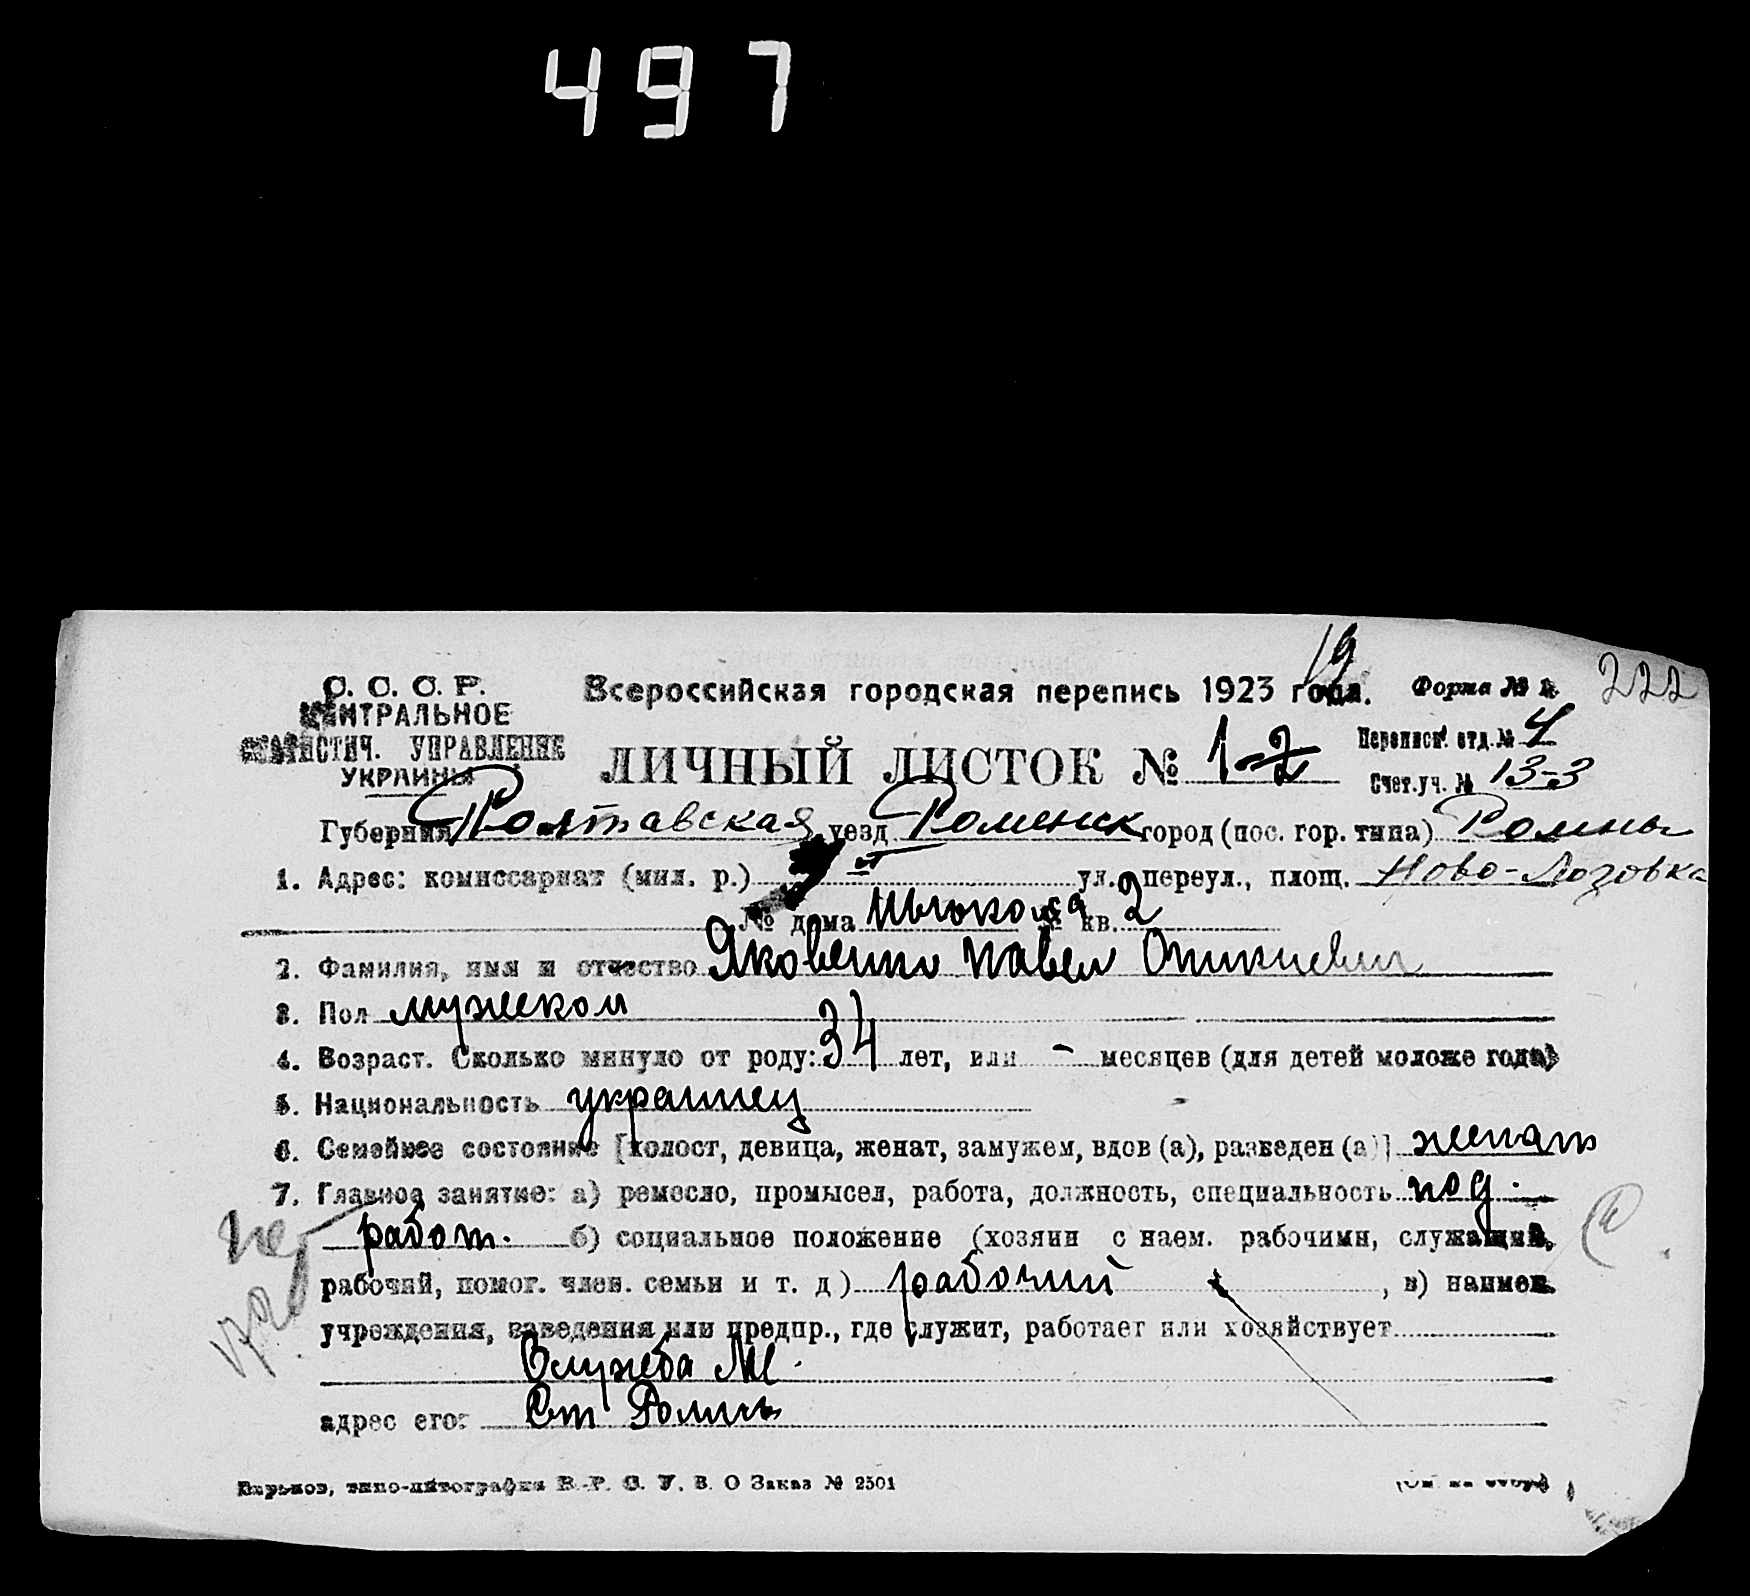 497
19
С. С. С. Р. Всероссийская городская перепись 1923 года. Форма № 222
ЦЕНТРАЛЬНОЕ
СТАТИСТИЧ. УПРАВЛЕНИЕ
УКРАИНЫ
ЛИЧНЫЙ ЛИСТОК № 1-2
Переписн. отд. № 4
Счет.уч. № 13-3
Губерния Полтавская уезд Роменск город (пос. гор. типа) Ромны
1. Адрес: комиссариат (мил. р.) ул. переул., площ. Ново-Лозовка
№ дома кв. 2
2. Фамилия, имя и отчество Яковенко Павел
3. Пол мужской
4. Возраст. Сколько минуло от роду: 34 лет, или - месяцев (для детей моложе года)
5. Национальность украинец
6. Семейное состояние [холост, девица, женат, замужем, вдов (а), разведен (а)] женат
7. Главное занятие: а) ремесло, промысел, работа, должность, специальность под.
работ. б) социальное положение (хозяин с наем. рабочими, служащий,
рабочий, помог. член. семьи и т. д) рабочий , в) наимен.
учреждения, заведения или предпр., где служит, работает или хозяйствует
Служба
адрес его: Ст Ромны
Харьков, типо-литография В. Р. С. У. В. О Заказ № 2501